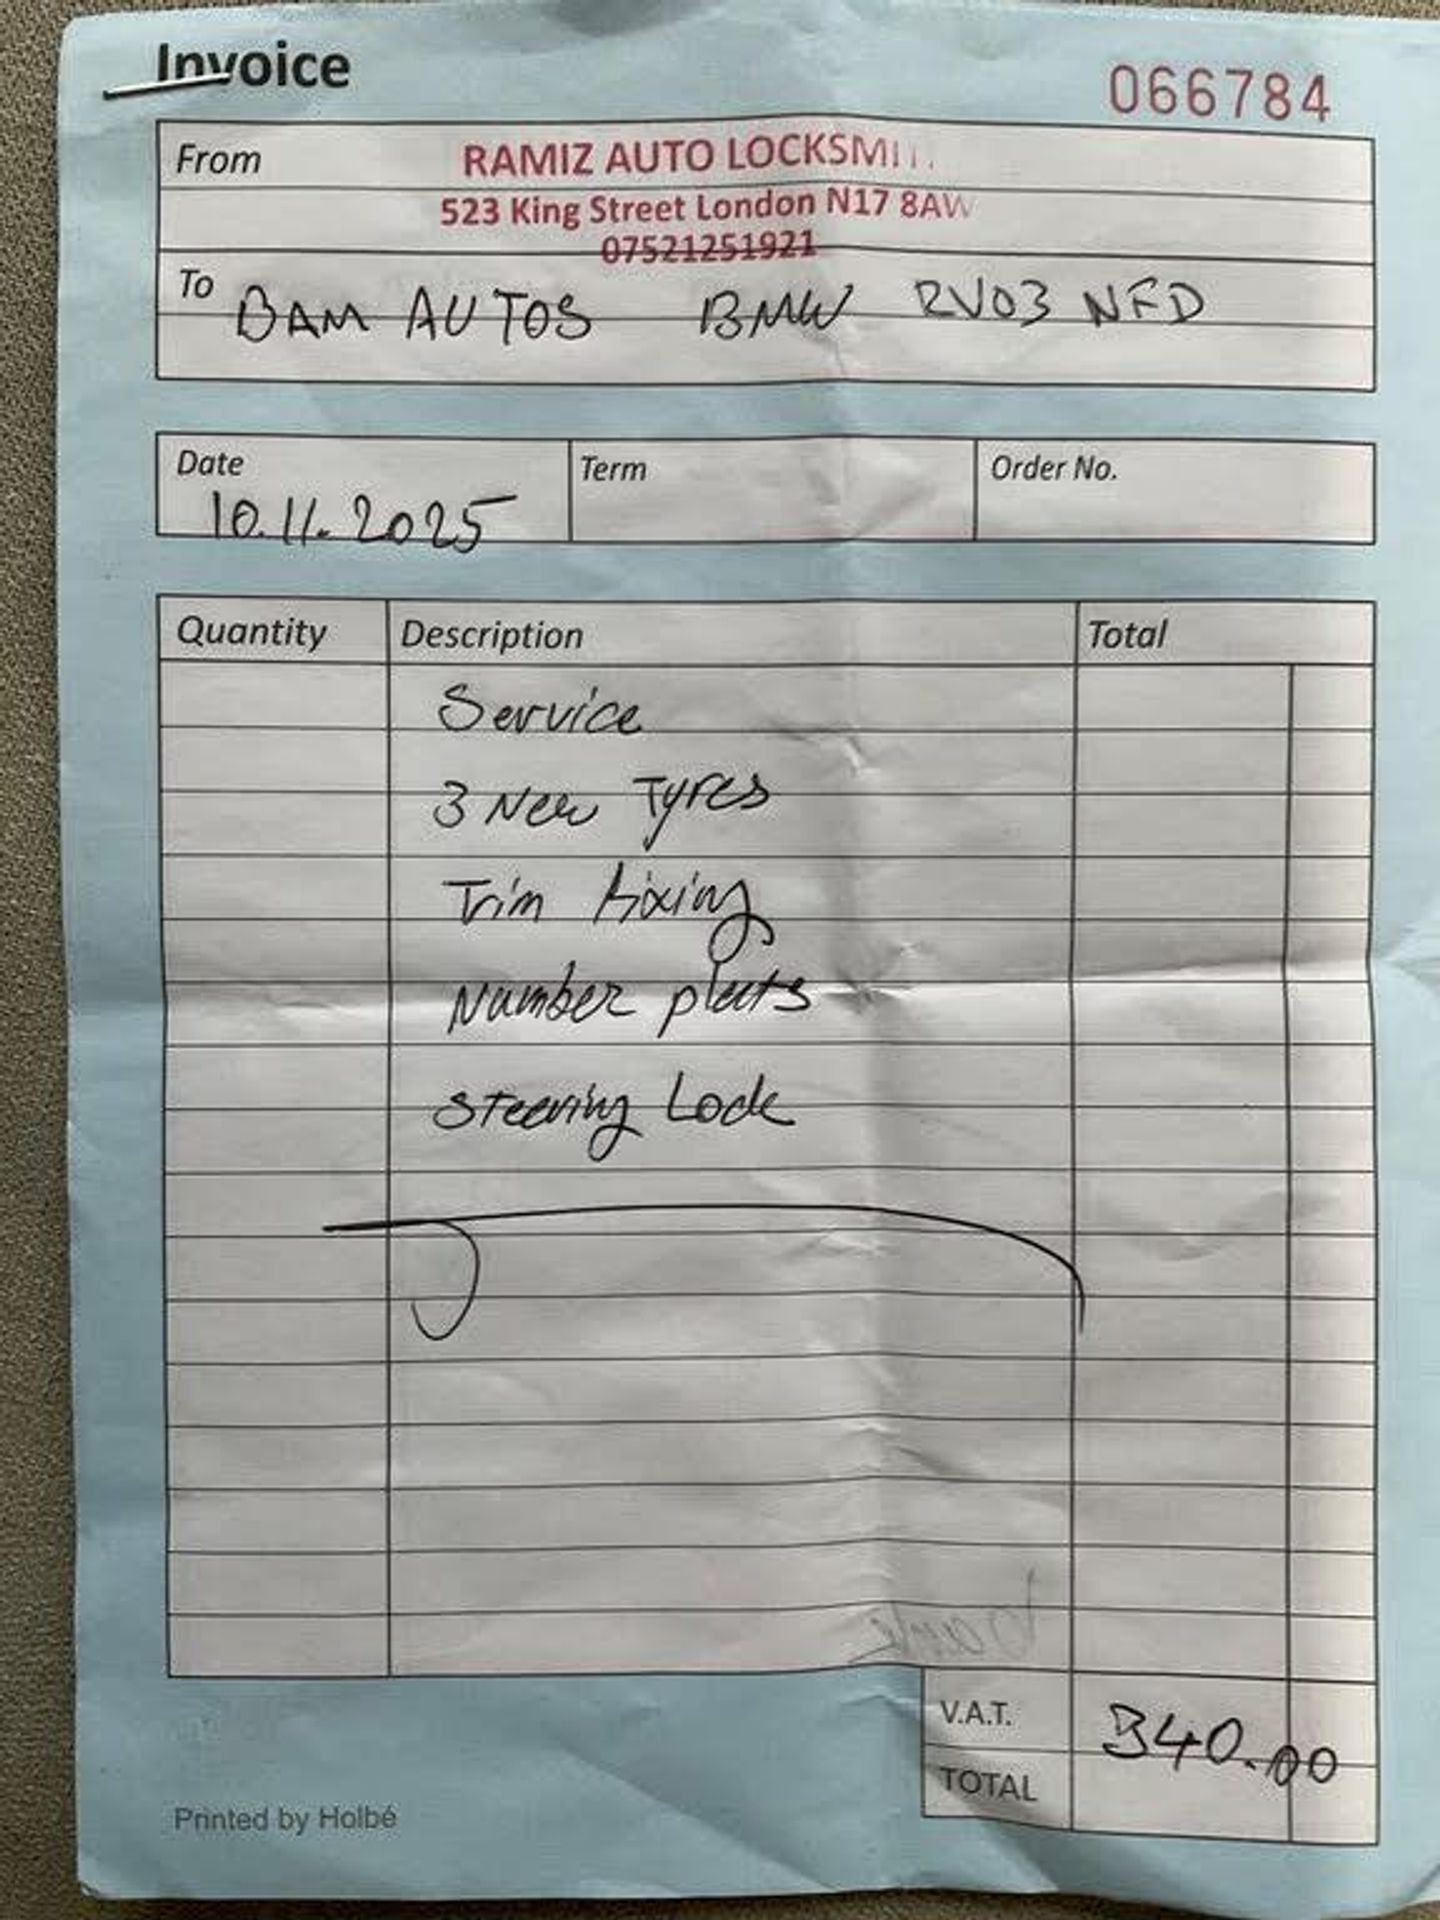 Invoice
066784
From
RAMIZ AUTO LOCKSMIT
523 King Street London N17 8AW
07521251921
To BAM AUTOS BMW RV03 NFD
Date Term Order No.
10.11.2025
Quantity Description Total
Service
3 New Tyres
Trim fixing
Number plats
Steering Lock
V.A.T.
340.00
TOTAL
Printed by Holbé